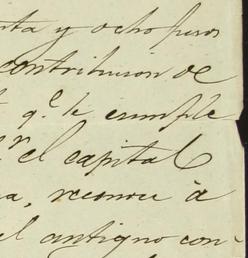 nta y ocho pesos
contribucion de
q.e le cumple
el capital
a, reconoce á
el antiguo con-